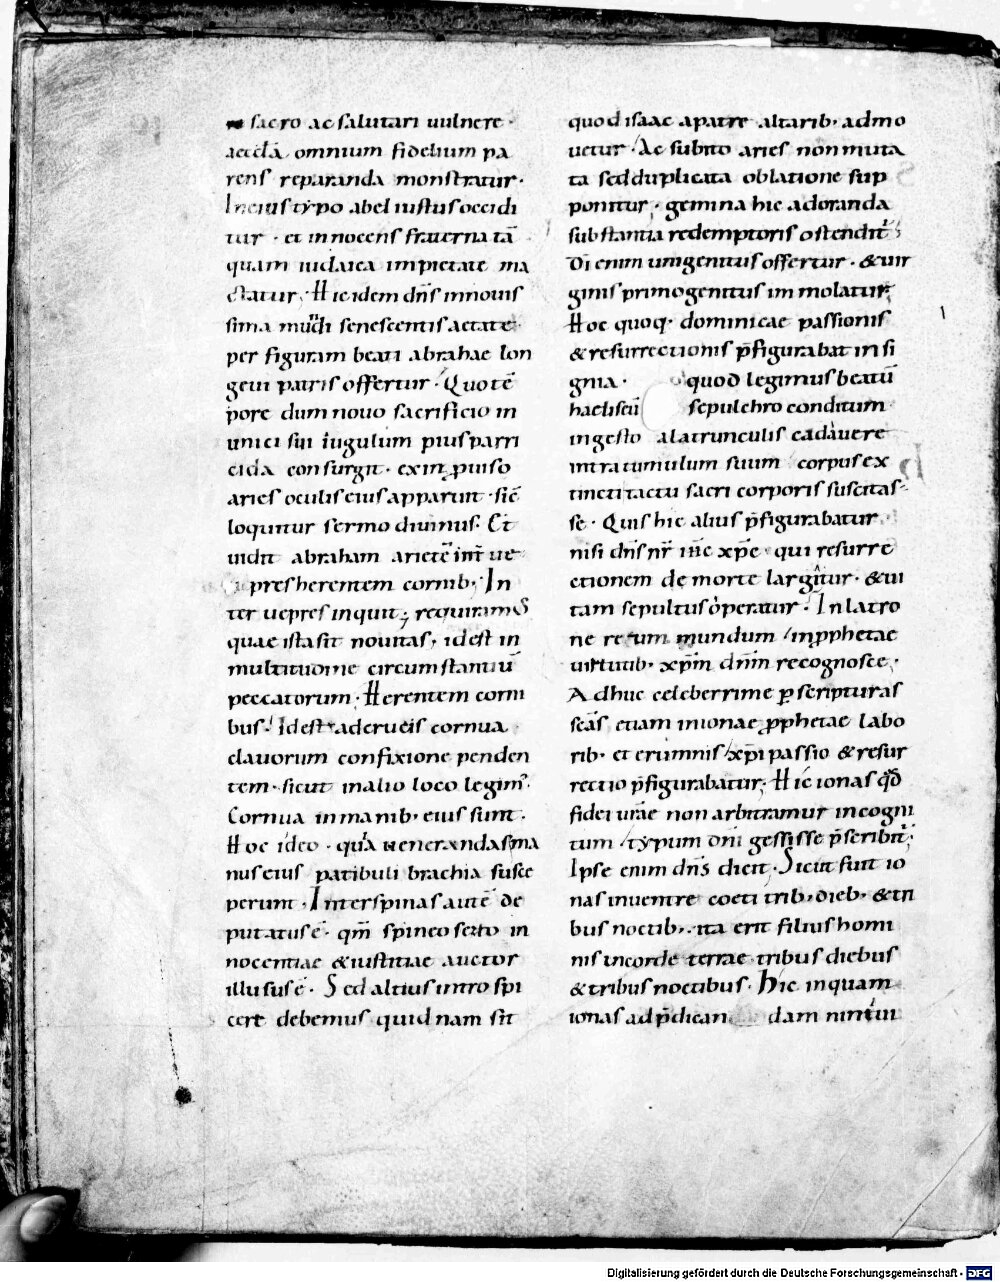 sacro ac salutari uulnere ·
aeccłā omnium fidelium pa
rens reparanda monstratur ·
In eius typo abel iustus occidi
tur · et innocens fraterna tā
quam iudaica impietate ma
ctatur; Hic idem dn̄s in nouis
sima mundi senescentis aetate ·
per figuram beati abrahae lon
geui patris offertur · Quo tē
pore dum nouo sacrificio in
unici sui iugulum pius parri
cida consurgit · ex inprouiso
aries oculis eius apparuit · sic̄
loquitur sermo diuinus · Et
uidit abraham arietē int̄ ue
pres herentem cornib; In
ter uepres inquit; requiramus
quae ista sit nouitas, id est in
multitudine circumstantiū
peccatorum · Herentem corni
bus · Id est ad crucis cornua
clauorum confixione penden
tem · sicut in alio loco legim̄ ·
Cornua in manib; eius sunt ·
Hoc ideo · quia uenerandas ma
nus eius patibuli brachia susce
perunt · Inter spinas autē de
putatus ē · qm̄ spineo serto in
nocentiae & iustitiae auctor
illusus ē · Sed altius introspi
cere debemus quidnam sit
quod isaac a patre altarib; admo
uetur · Ac subito aries non muta
ta sed duplicata oblatione sup
ponitur; gemina hic adoranda
substantia redemptoris ostendit̄;
Di enim unigenitus offertur · & uir
ginis primogenitus immolatur;
Hoc quoq; dominicae passionis
& resurrectionis p̄figurabat insi
gnia · quod legimus beatū
haeliseū sepulchro conditum
ingesto a latrunculis cadauere
intra tumulum suum corpus ex
tincti tactu sacri corporis suscitas
se · Quis hic alius p̄figurabatur
nisi dn̄s nr̄ ih̄c xp̄c qui resurre
ctionem de morte largitur · & ui
tam sepultus operatur · In latro
ne reum mundum in pphetae
uirtutib; xp̄m dn̄m recognosce ·
Adhuc celeberrime p scripturas
scās etiam in ionae pphetae labo
rib; et erumnis xp̄i passio & resur
rectio p̄figurabatur · Hic ionas qd̄
fidei ur̄ae non arbitramur incogni
tum typum dni gessisse p̄scribit̄;
Ipse enim dn̄s dicit · Sicut fuit io
nas in uentre coeti trib; dieb; & tri
bus noctib; · ita erit filius homi
nis in corde terrae tribus diebus
& tribus noctibus · Hic inquam
ionas ad p̄dican dam niniui
Digitalisierung gefördert durch die Deutsche Forschungsgemeinschaft - DFG